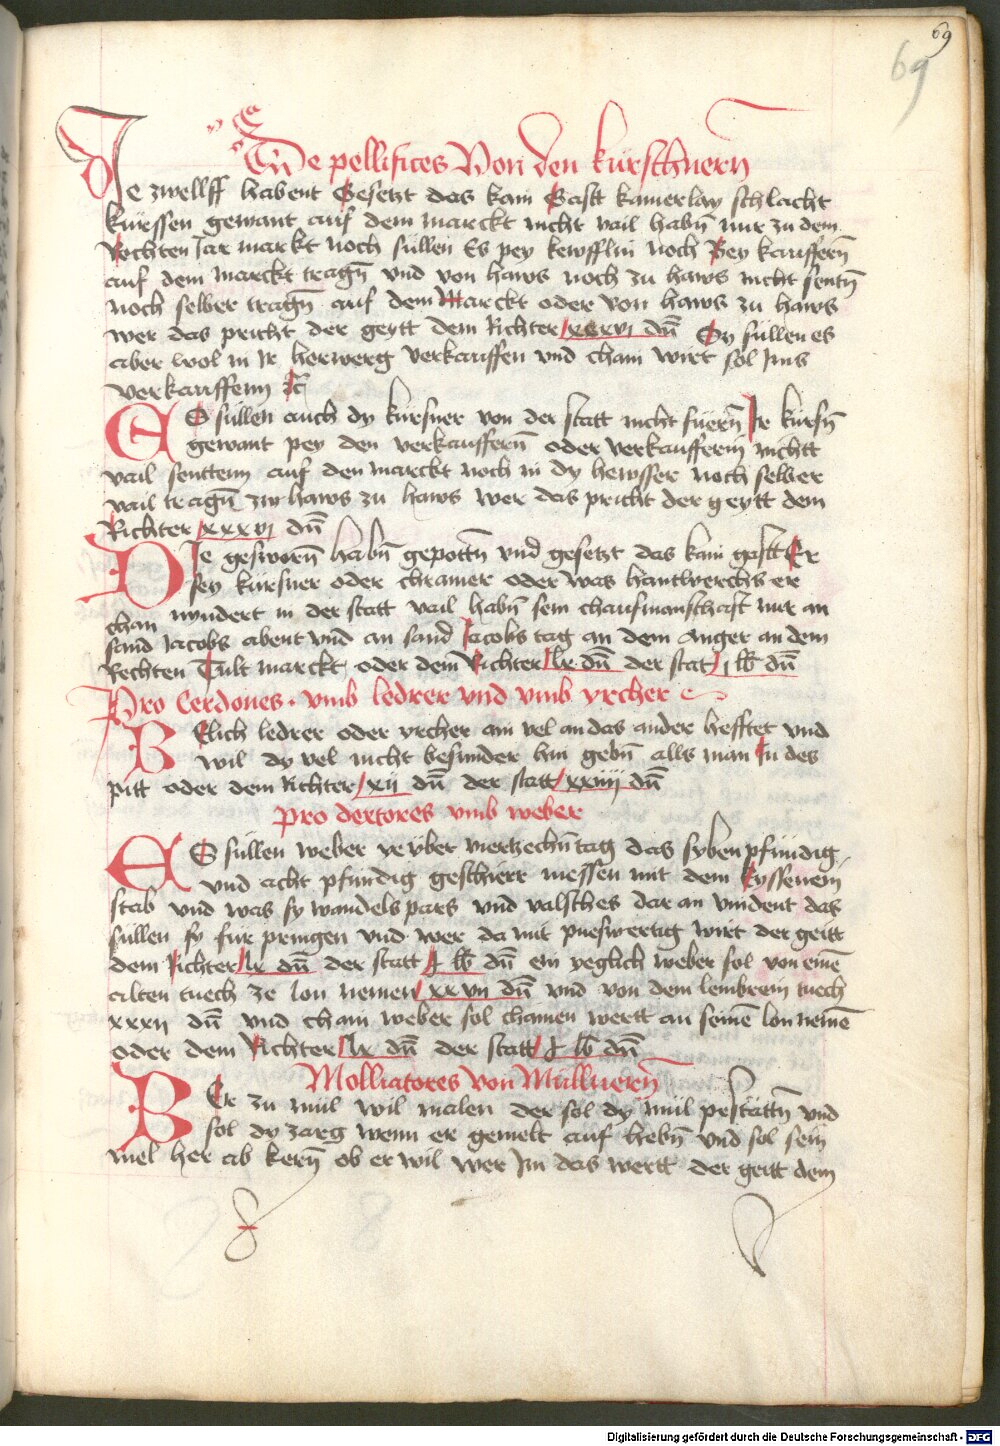 69
69
De pellifices Von den kürschnern̄
Je zwellff habent Gesetzt das kain Gastt kainerlay schlacht
kürssen gewant auf dem marckt nicht vail habn̄ nur zu dem
Rechten Jar markt noch süllen Es pey kewfflin noch Bey kauffern̄
auf dem marckt tragn̄ vnd von haws noch zu haws nicht sentn̄
noch selber tragn̄ auf dem Marckt oder von haws zu haws
wer das pricht der geytt dem Richter xxxvi dn̄ Sy süllen es
aber wol in Jr herwerg verkauffen vnd chain wirt sol Jms
verkauffenn
ES süllen auch dy kürsner von der statt nicht füern̄ Jr kürsn̄
gewant pey den verkauffern̄ oder verkaufferin nichtt
vail senttenn auf den marckt noch in dy hewsser noch selber
vail tragn̄ zw haws zu haws wer das pricht der geytt dem
Richter xxxvi dn̄
DJe gesworn̄ habn̄ gepottn̄ vnd gesetzt das kain gastt Er
sey kürsner oder chramer oder was hantwerchs er
chan nyndert in der statt vail habn̄ sein chaufmanschaft nur an
sand Jacobs abent vnd an sand Jacobs tag an dem Anger an dem
Rechten Tult marckt oder dem Richter lx dn̄ der stat j lb dn̄
Pro Cerdones. vmb ledrer vnd vmb yrcher
WElich ledrer oder yrcher ain vel an das ander hefftet vnd
wil dy vel nicht besunder hin gebn̄ alls man Jn des
pitt oder dem Richter xij dn̄ der statt xxiiij dn̄
pro dextores vmb weber
ES süllen weber ye über viertzechn̄ tag das syben pfündig
vnd acht pfundig geschierr messen mit dem Eyssenem
stab vnd was sy wandelspärs vnd valsches dar an vindent das
süllen sy für pringen vnd wer da mit pueswertig wirt der geitt
dem Richter lx dn̄ der statt j lb dn̄ ein yeglich weber sol von einē
alten tuech ze lon nemen xxvii dn̄ vnd von dem lembrein tuech
xxxii dn̄ vnd chain weber sol chainen wertt an seinē lon nemē
oder dem Richter lx dn̄ der statt j lb dn̄
Molliatores von Müllnern̄
WEr zu mül wil malen der sol dy mül pestättn̄ vnd
sol dy zarg wenn er gemelt auf hebn̄ vnd sol sein
mel her ab kern̄ ob er wil wer Jm das wertt der geitt dem
Digitalisierung gefördert durch die Deutsche Forschungsgemeinschaft - DFG